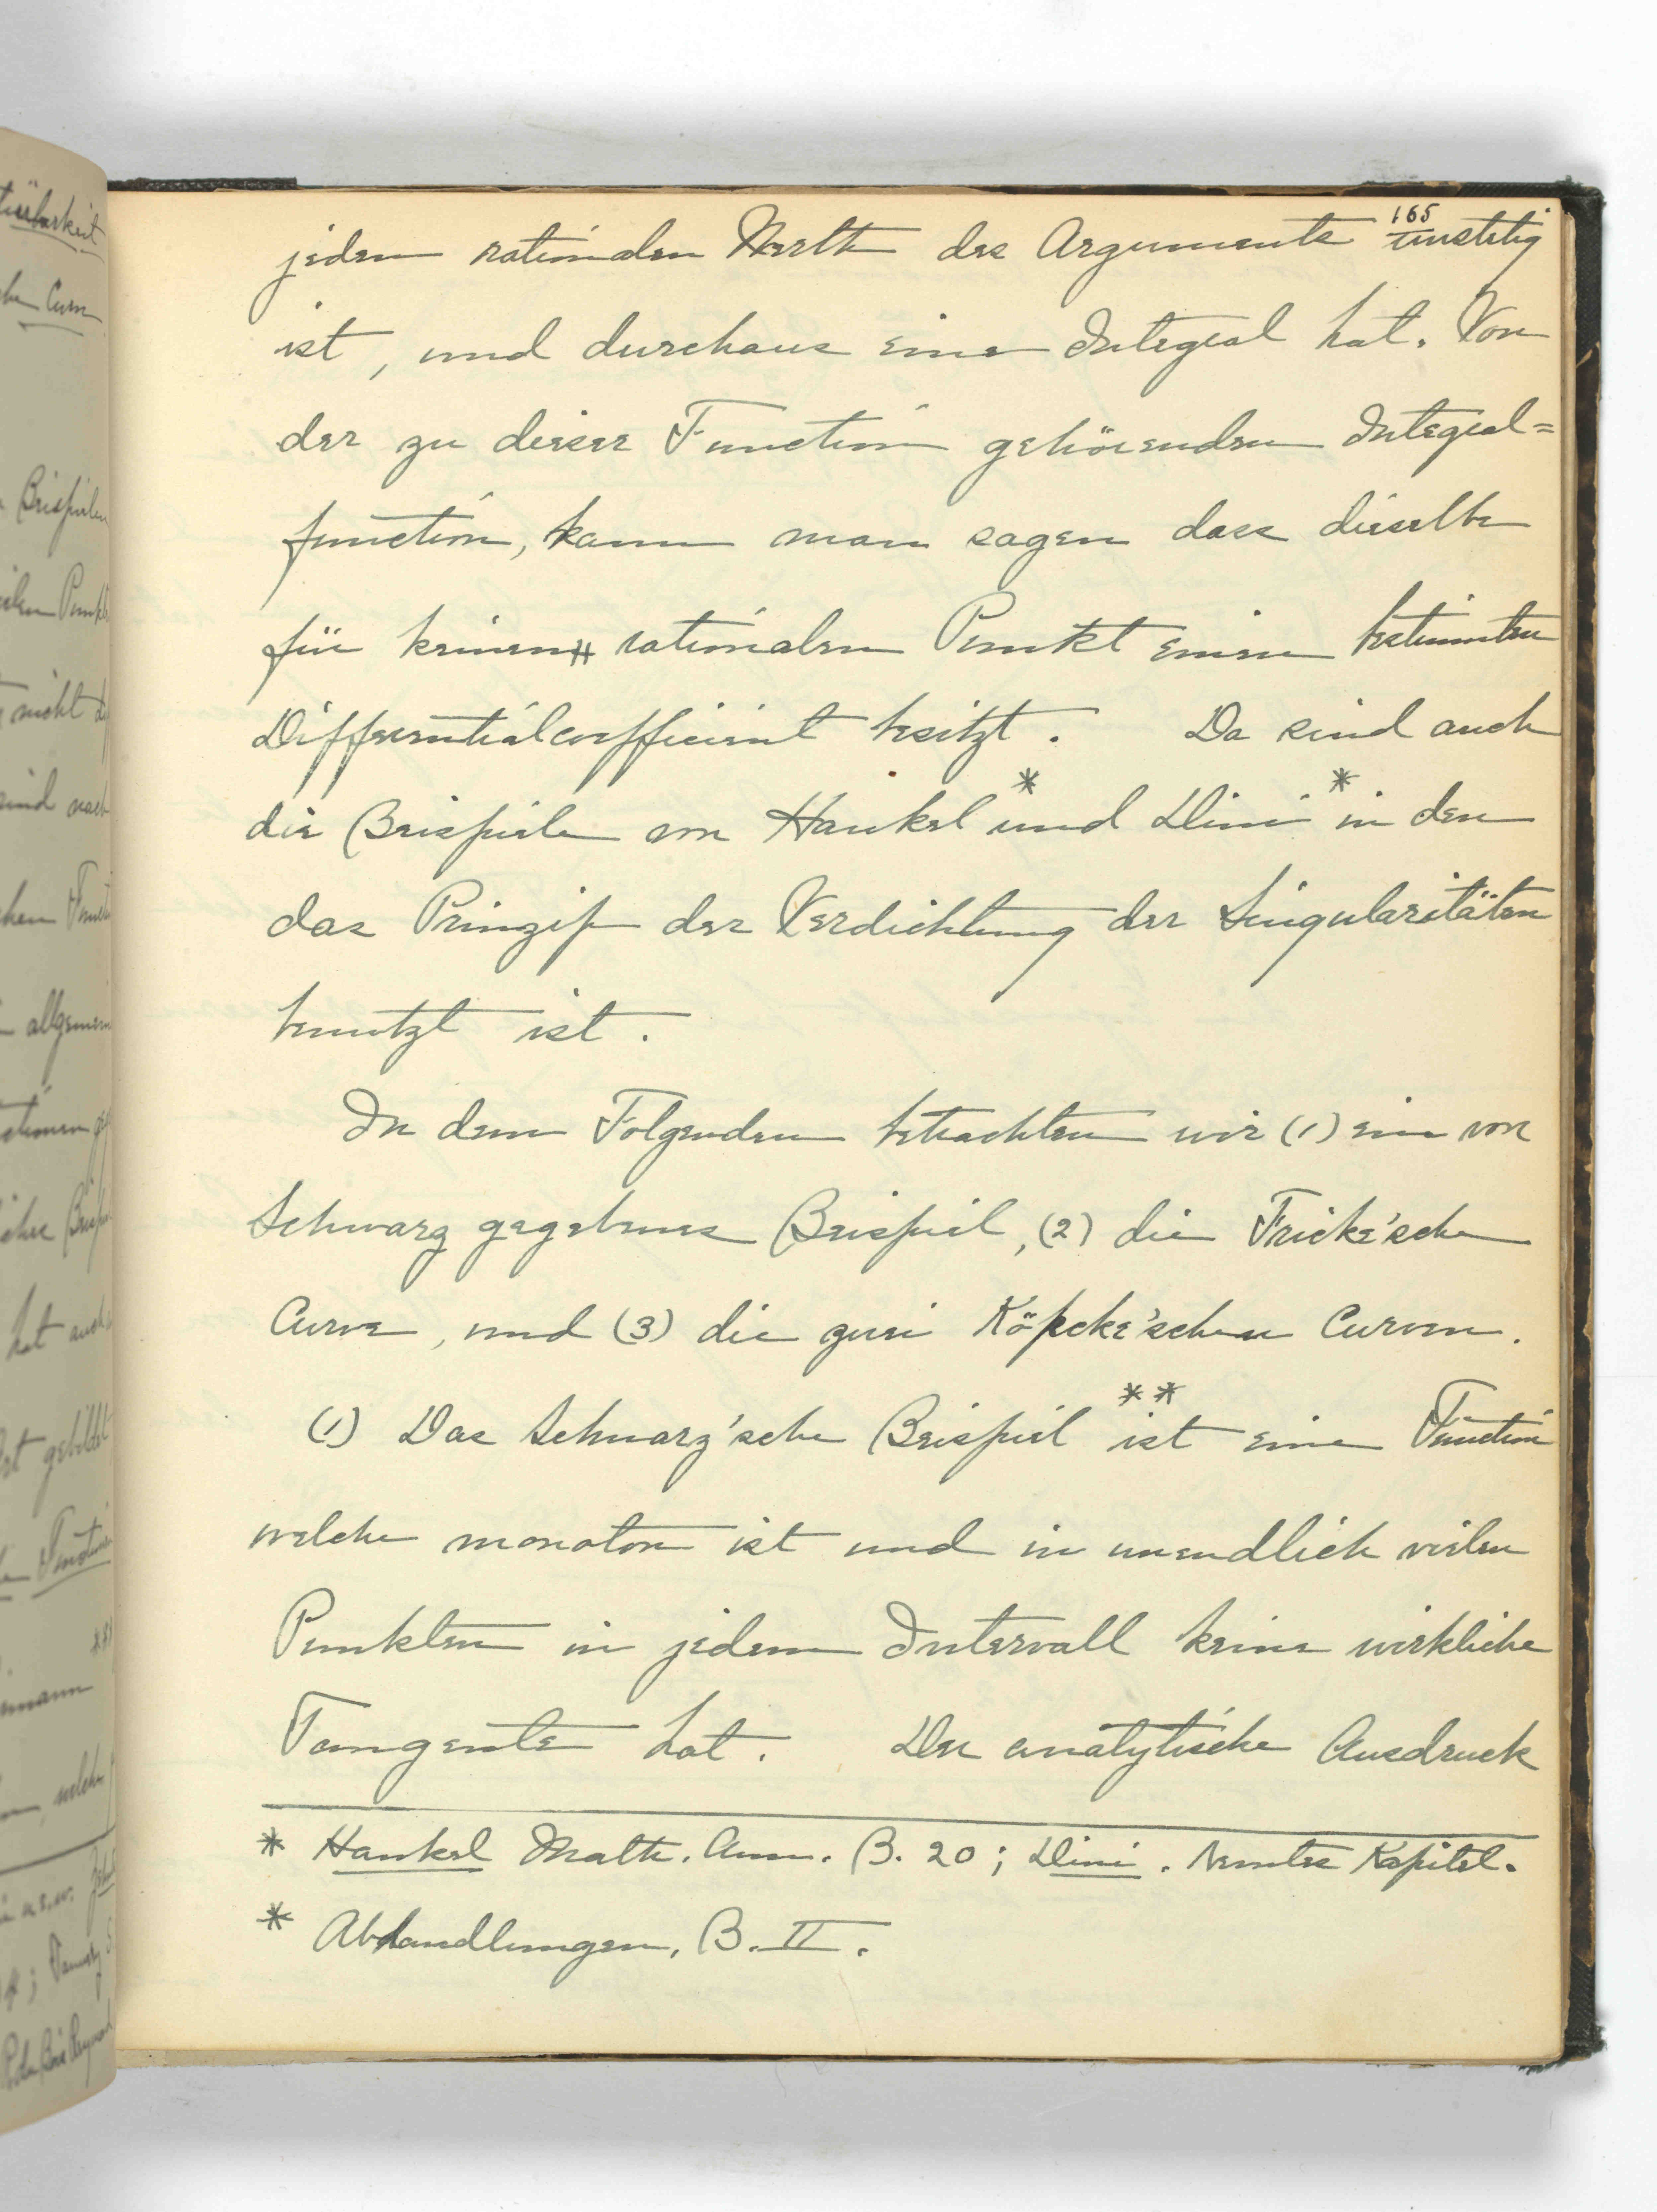 165
jeden rationalen Werth des Arguments unstetig
ist, und durchaus eine Integral hat. Von
der zu dieser Function gehörenden Integral=
function, kann man sagen dass dieselbe
für keinen rationalen Punkt einen bestimmten
Differentialcoefficient besitzt. Da sind auch
die Beispiele von Hankel* und Dini* in den
das Prinzip der Verdichtung der Singularitäten
benutzt ist.
In dem Folgenden betrachten wir (1) ein von
Schwarz gegebenes Beispiel, (2) die Fricke'sche
Curve, und (3) die zwei Köpcke'schen Curven.
(1) Das Schwarz'sche Beispiel ** ist eine Function
welche monoton ist und in unendlich vielen
Punkten in jedem Intervall keine wirkliche
Tangente hat. Der analytische Ausdruck
* Hankel Math. Ann. B. 20; Dini. Neuntes Kapitel.
* Abhandlungen, B. II.